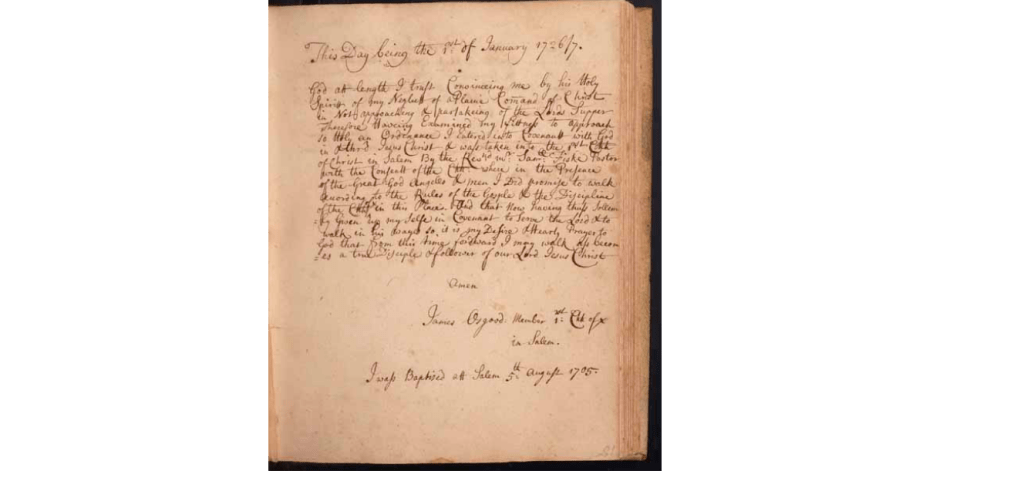 This Day being the 1st of January 1726/7.
God att length I trust Convinceing me by his Holy
Spirit of my Neglect of a Plaine Comand of Christ
in Not approaching & partakeing of the Lords Supper
Therefore Haveing Examined my fittness to approach
so Holy an Ordenance I entered into Covenant with God
in & thro Jesus Christ & was taken into the 1st Chh
of Christ in Salem By the Revd mr Saml Fiske Pastor
with the Consent of the Chh: where in the Presence
of the Great God Angels & men I Did promise to walk
according to the Rules of the Gosple & the Discipline
of the Chh in this Place. And that Now having thus Solem
=ly Given up my Selfe in Covenant to Serve the Lord & to
walk in his ways so it is my Desire & Prayer to
God that from this time forward I may walk ass becom
=es a true Disciple & follower of our Lord Jesus Christ
Amen
James Osgood Member 1st Chh of x
in Salem.
I wass Baptised att Salem 5th August 1705.